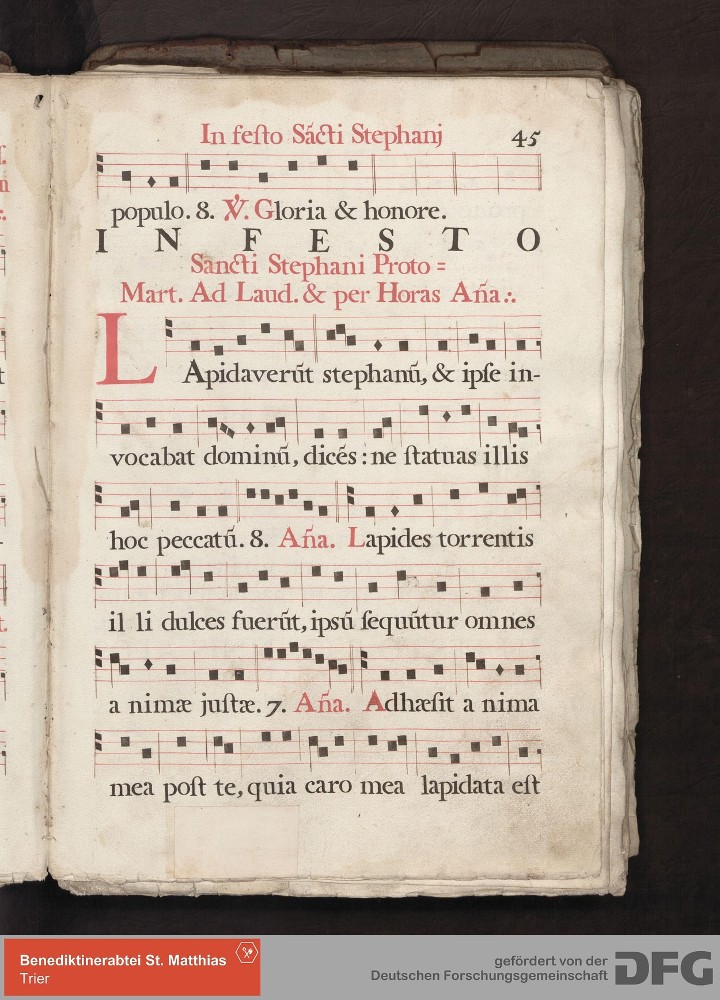 In festo Sã́cti Stephanj 45
populo. 8. ℣. Gloria & honore.
IN FESTO
Sancti Stephani Proto=
Mart. Ad Laud. & per Horas Aña∴
LApidaverũt stephanũ, & ipse in-
vocabat dominũ, dicẽs: ne statuas illis
hoc peccatũ. 8. Aña. Lapides torrentis
il li dulces fuerũt, ipsũ sequũtur omnes
a nimæ justæ. 7. Aña. Adhæsit a nima
mea post te, quia caro mea lapidata est
Benediktinerabtei St. Matthias
Trier
gefördert von der
Deutschen Forschungsgemeinschaft DFG